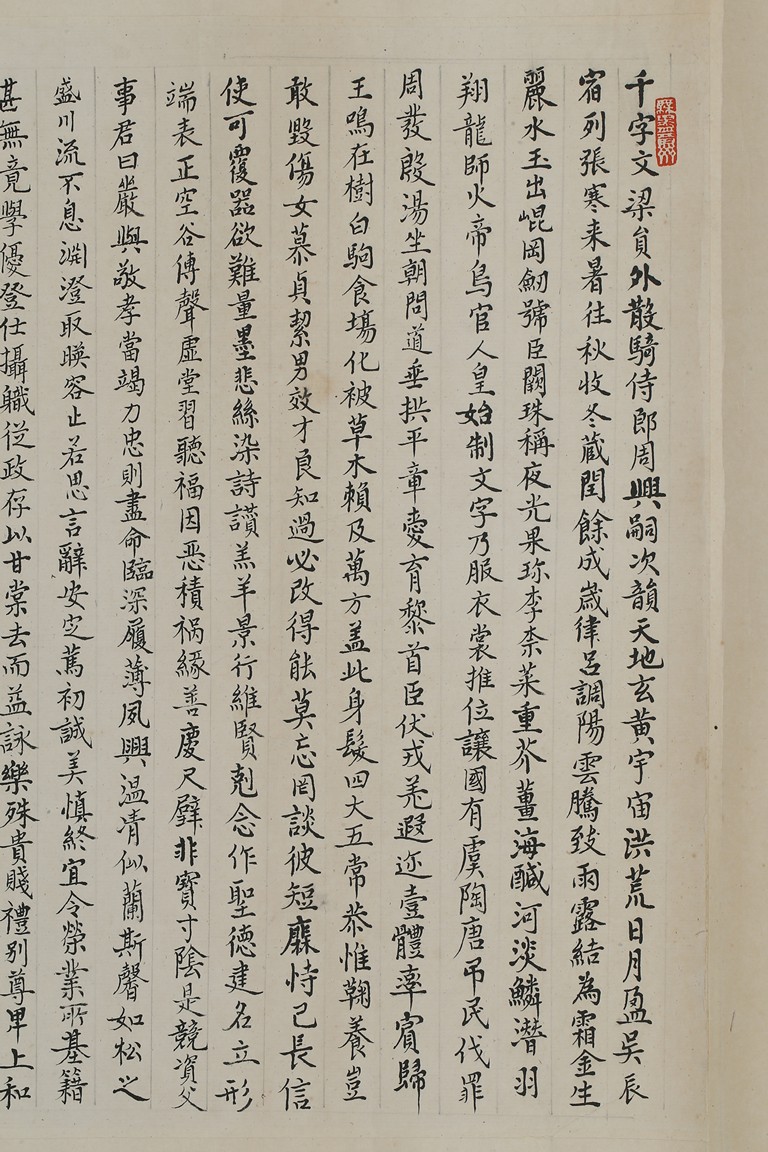 千字文梁員外散騎侍郎周興嗣次韻天地玄黄宇宙洪荒日月盈昃辰
宿列張寒来暑往秋收冬蔵閏餘成嵗律呂調陽雲騰致雨露結為霜金生
麗水玉出崐岡劒號巨闕珠稱夜光果珎李柰菜重芥薑海鹹河淡鱗潛羽
翔龍師火帝鳥官人皇始制文字乃服衣裳推位讓國有虞陶唐吊民伐罪
周發殷湯坐朝問道垂拱平章愛育黎首臣伏戎羌遐迩壹體率賓歸
王鳴在樹白駒食場化被草木賴及萬方盖此身髮四大五常恭惟鞠養豈
敢毀傷女慕貞絜男效才良知過必改得能莫忘罔談彼短靡恃己長信
使可覆器欲難量墨悲絲染詩讚羔羊景行維賢剋念作聖德建名立形
端表正空谷傳聲虛堂習聽福因惡積禍緣善慶尺璧非寶寸陰是競資父
事君曰嚴與敬孝當竭力忠則盡命臨深履薄夙興温凊似蘭斯馨如松之
盛川流不息淵澄取暎容止若思言辭安定篤初誠美慎終宜令榮業所基籍
甚無竟學優登仕攝職從政存以甘棠去而益詠樂殊貴賤禮别尊卑上和